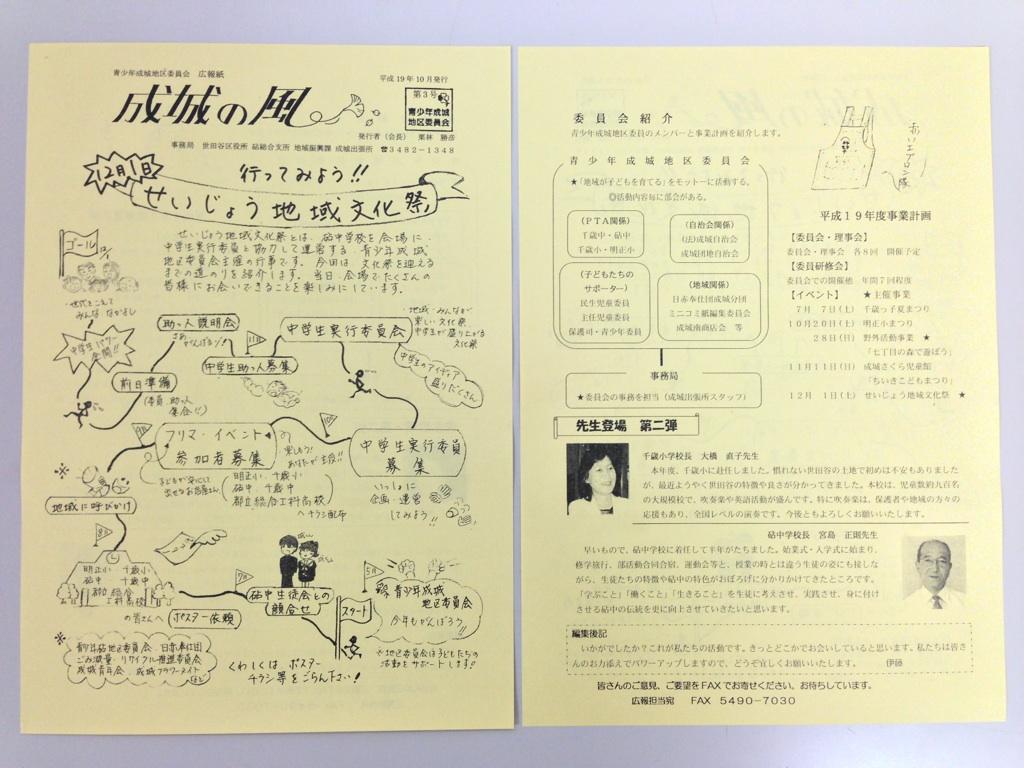 青少年成城地区委員会 広報紙
平成19年10月発行
成城の風
第3号
青少年成城
地区委員会
発行者(会長) 栗林 勝彦
事務局 世田谷区役所 砧総合支所 地域振興課 成城出張所 ☎3482-1348
12月1日
行ってみよう!!
せいじょう地域文化祭
せいじょう地域文化祭とは、砧中学校を会場に
中学生実行委員と協力して運営する、青少年成城
地区委員会主催の行事です。今回は 文化祭を迎える
までの道のりを紹介します。当日、会場でたくさんの
皆様にお会いできることを楽しみにしています。
ゴール
12/1
・世代をこえて
みんな なかよし
中学生パワー
全開!!
前日準備
(委員、助っ人
集合!!)
助っ人説明会
さあ
がんばるゾ!
11月
中学生助っ人募集
中学生実行委員会
・地域・みんなが
楽しい文化祭
・中学生が盛り上がる
文化祭
中学生のアイディア
盛りだくさん
9月
フリマ・イベント
参加者募集
楽しもう!
あなたが主役!!
子どもが安心して
出せるお店屋さん
明正小 千歳小
砧中 千歳中
都立総合工科高校
へチラシ配布
10月
中学生実行委員
募集
いっしょに
企画・運営
してみよう!!
※
地域に呼びかけ
8月
明正小 千歳小
砧中 千歳中
都立総合
工科高校
の皆さんへ
ポスター依頼
7月
砧中生徒会との
顔合せ
5月
スタート
祭 青少年成城
地区委員会
今年もがんばろう!!
※地区委員会は子どもたちの
活動をサポートします!!
※
青少年砧地区委員会・日赤奉仕団
ごみ減量・リサイクル推進委員会
成城青年会・成城フラワーメイト
ほか
くわしくは、ポスター
チラシ等をごらん下さい!
委員会紹介
青少年成城地区委員のメンバーと事業計画を紹介します。
赤いエプロン隊
青少年成城地区委員会
★「地域が子どもを育てる」をモットーに活動する。
◎活動内容毎に部会がある。
(PTA関係)
千歳中・砧中
千歳小・明正小
(自治会関係)
(法)成城自治会
成城団地自治会
(子どもたちの
サポーター)
民生児童委員
主任児童委員
保護司・青少年委員
(地域関係)
日赤奉仕団成城分団
ミニコミ紙編集委員会
成城南商店会 等
事務局
★委員会の事務を担当(成城出張所スタッフ)
平成19年度事業計画
【委員会・理事会】
委員会・理事会 各8回 開催予定
【委員研修会】
委員会での開催他 年間7回程度
【イベント】 ★主催事業
7月 7日(土) 千歳っ子夏まつり
10月20日(土) 明正小まつり
28日(日) 野外活動事業 ★
「七丁目の森で遊ぼう」
11月11日(日) 成城さくら児童館
「ちいきこどもまつり」
12月 1日(土) せいじょう地域文化祭 ★
先生登場 第二弾
千歳小学校長 大橋 直子先生
本年度、千歳小に赴任しました。慣れない世田谷の土地で初めは不安もありました
が、最近ようやく世田谷の特徴や良さが分かってきました。本校は、児童数約九百名
の大規模校で、吹奏楽や英語活動が盛んです。特に吹奏楽は、保護者や地域の方々の
応援もあり、全国レベルの演奏です。今後ともよろしくお願いいたします。
砧中学校長 宮島 正則先生
早いもので、砧中学校に着任して半年がたちました。始業式・入学式に始まり、
修学旅行、部活動合同合宿、運動会等と、授業の時とは違う生徒の姿にも接しな
がら、生徒たちの特徴や砧中の特色がおぼろげに分かりかけてきたところです。
「学ぶこと」「働くこと」「生きること」を生徒に考えさせ、実践させ、身に付け
させる砧中の伝統を更に向上させていきたいと思います。
編集後記
いかがでしたか?これが私たちの活動です。きっとどこかでお会いしていると思います。私たちは皆さ
んのお力添えでパワーアップしますので、どうぞ宜しくお願いいたします。 伊藤
皆さんのご意見、ご要望をFAXでお寄せください。お待ちしています。
広報担当宛 FAX 5490-7030